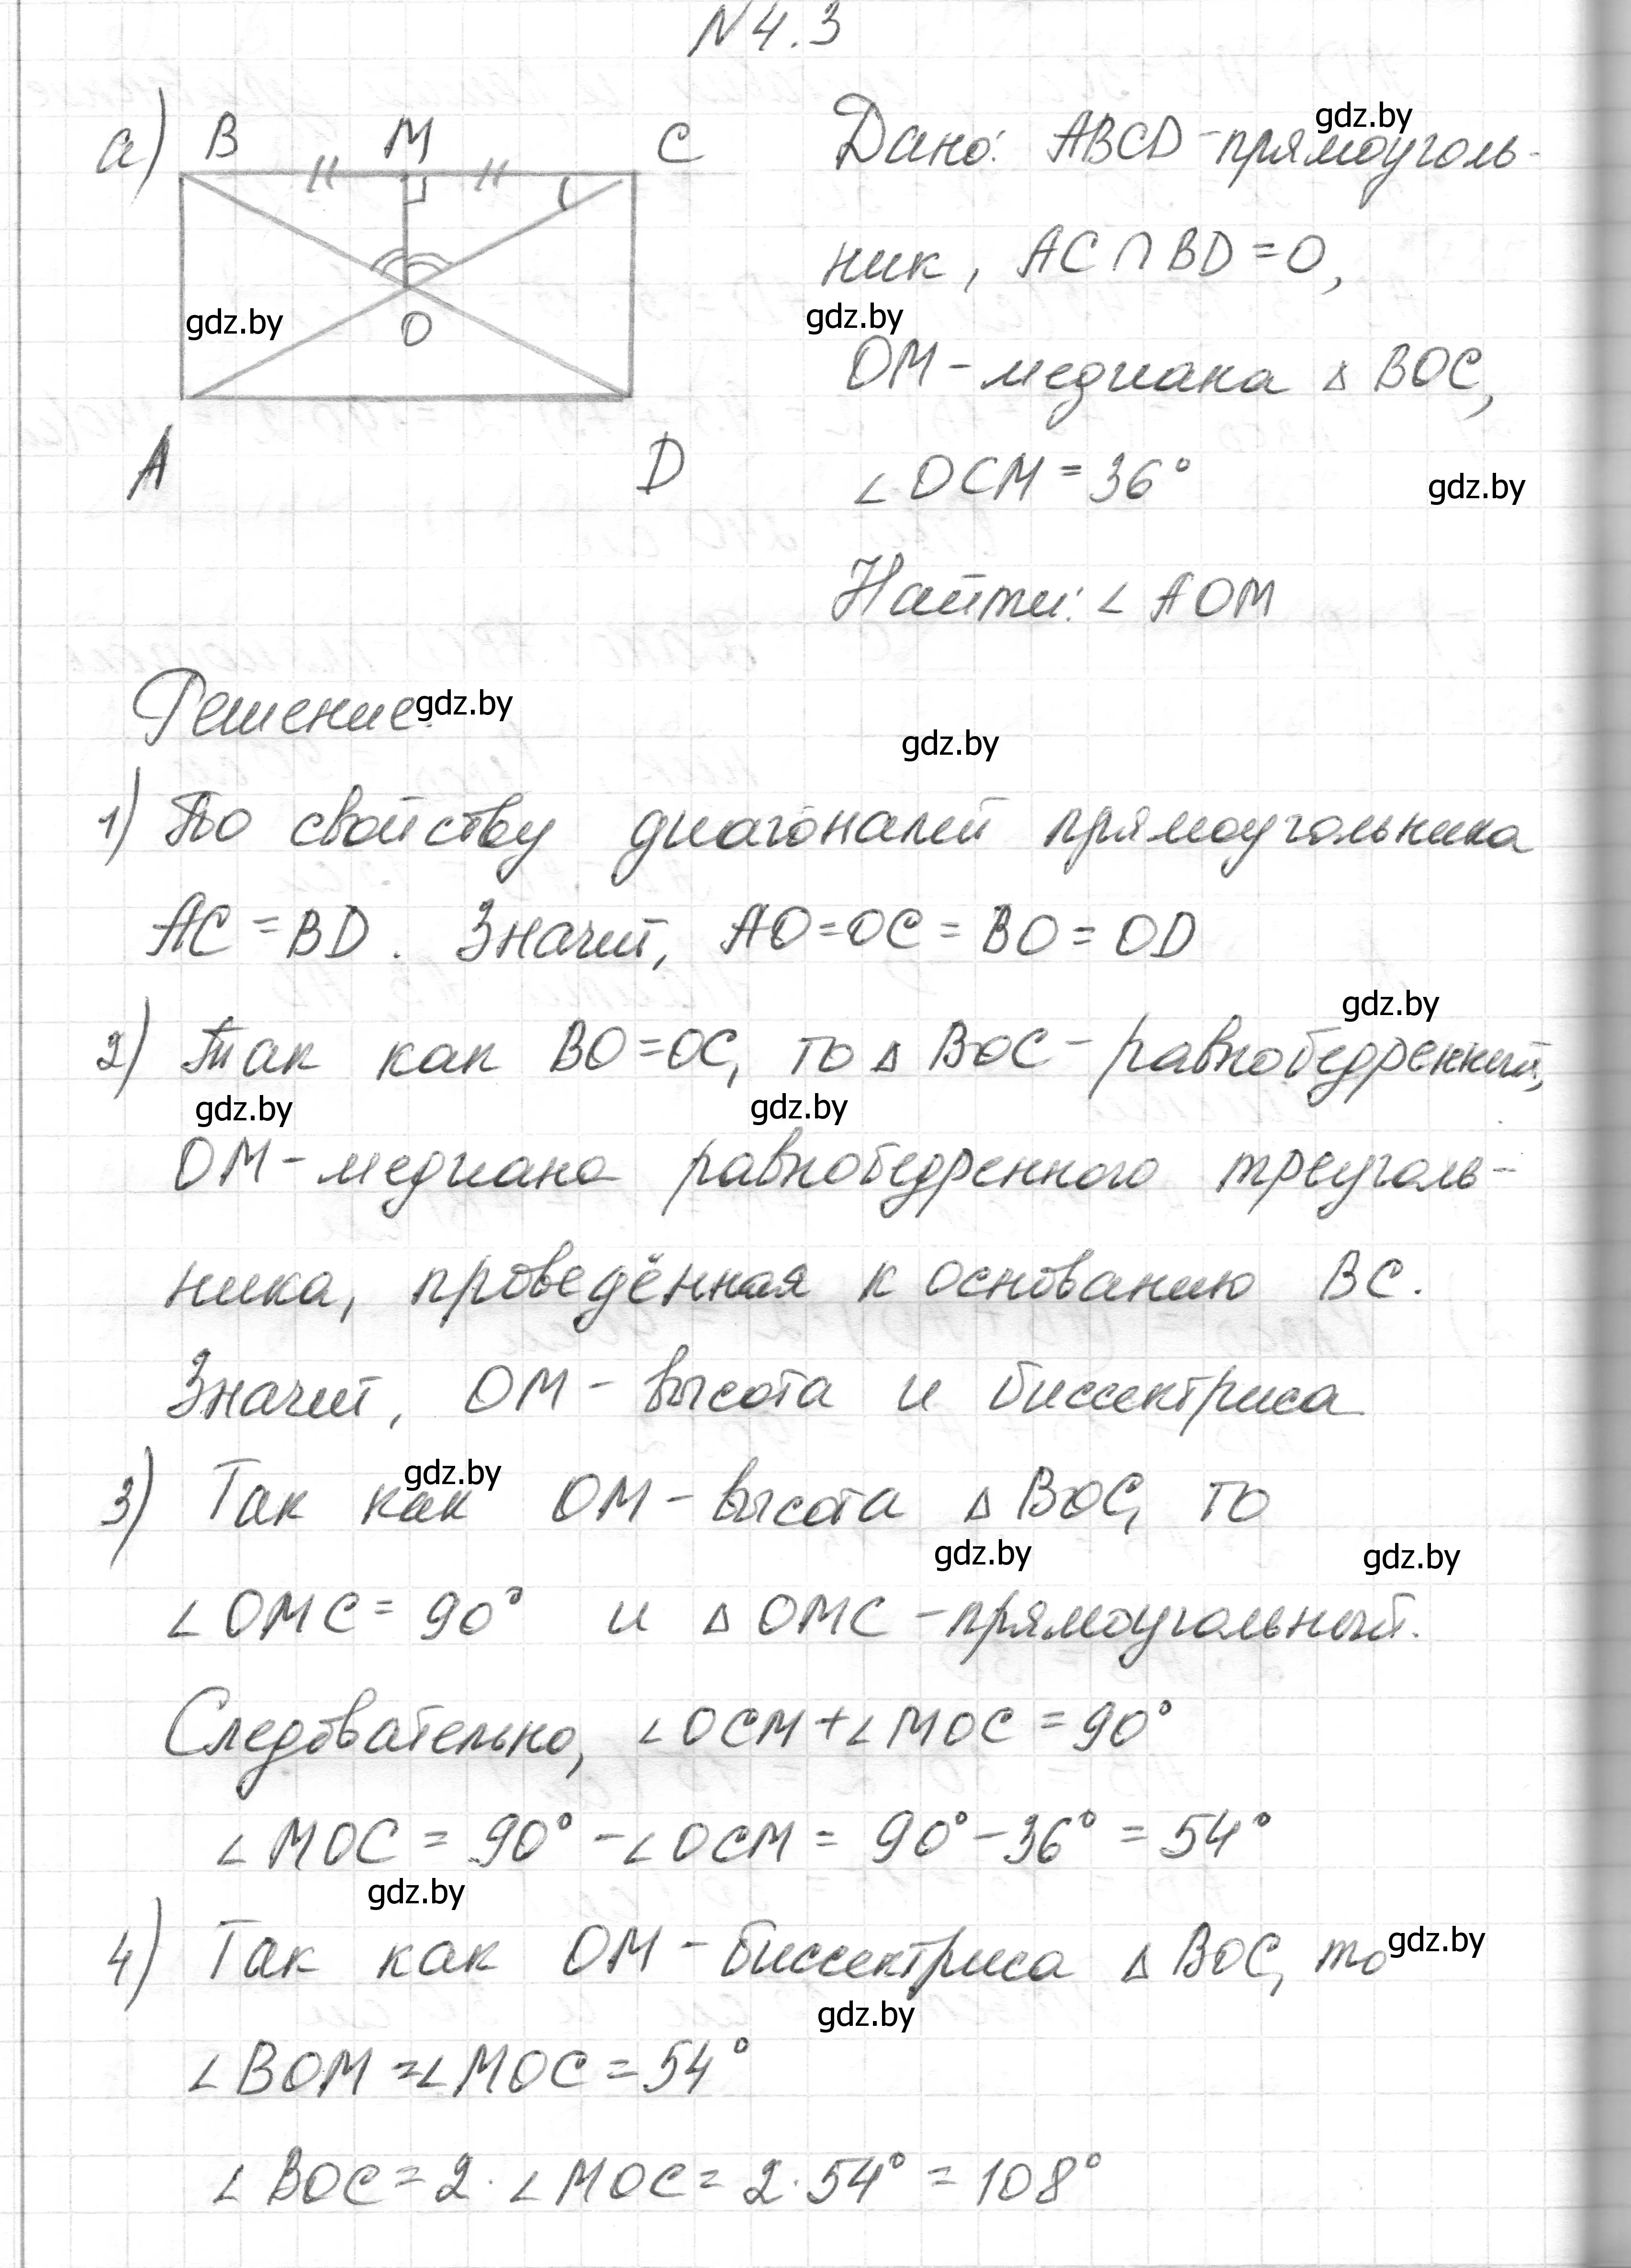 N 4.3
а) B M C
O
A D
Дано: ABCD - прямоуголь-
ник, AC ∩ BD = O,
OM - медиана △ BOC,
∠ OCM = 36°
Найти: ∠ AOM
gdz.by
gdz.by
gdz.by
gdz.by
Решение:
gdz.by
gdz.by
1) По свойству диагоналей прямоугольника
AC = BD. Значит, AO = OC = BO = OD
gdz.by
2) Так как BO = OC, то △ BOC - равнобедренный,
gdz.by
gdz.by
OM - медиана равнобедренного треуголь-
ника, проведённая к основанию BC.
Значит, OM - высота и биссектриса
gdz.by
3) Так как OM - высота △ BOC, то
gdz.by
gdz.by
∠ OMC = 90° и △ OMC - прямоугольный.
Следовательно, ∠ OCM + ∠ MOC = 90°
∠ MOC = 90° - ∠ OCM = 90° - 36° = 54°
gdz.by
4) Так как OM - биссектриса △ BOC, то
gdz.by
gdz.by
∠ BOM = ∠ MOC = 54°
∠ BOC = 2 · ∠ MOC = 2 · 54° = 108°